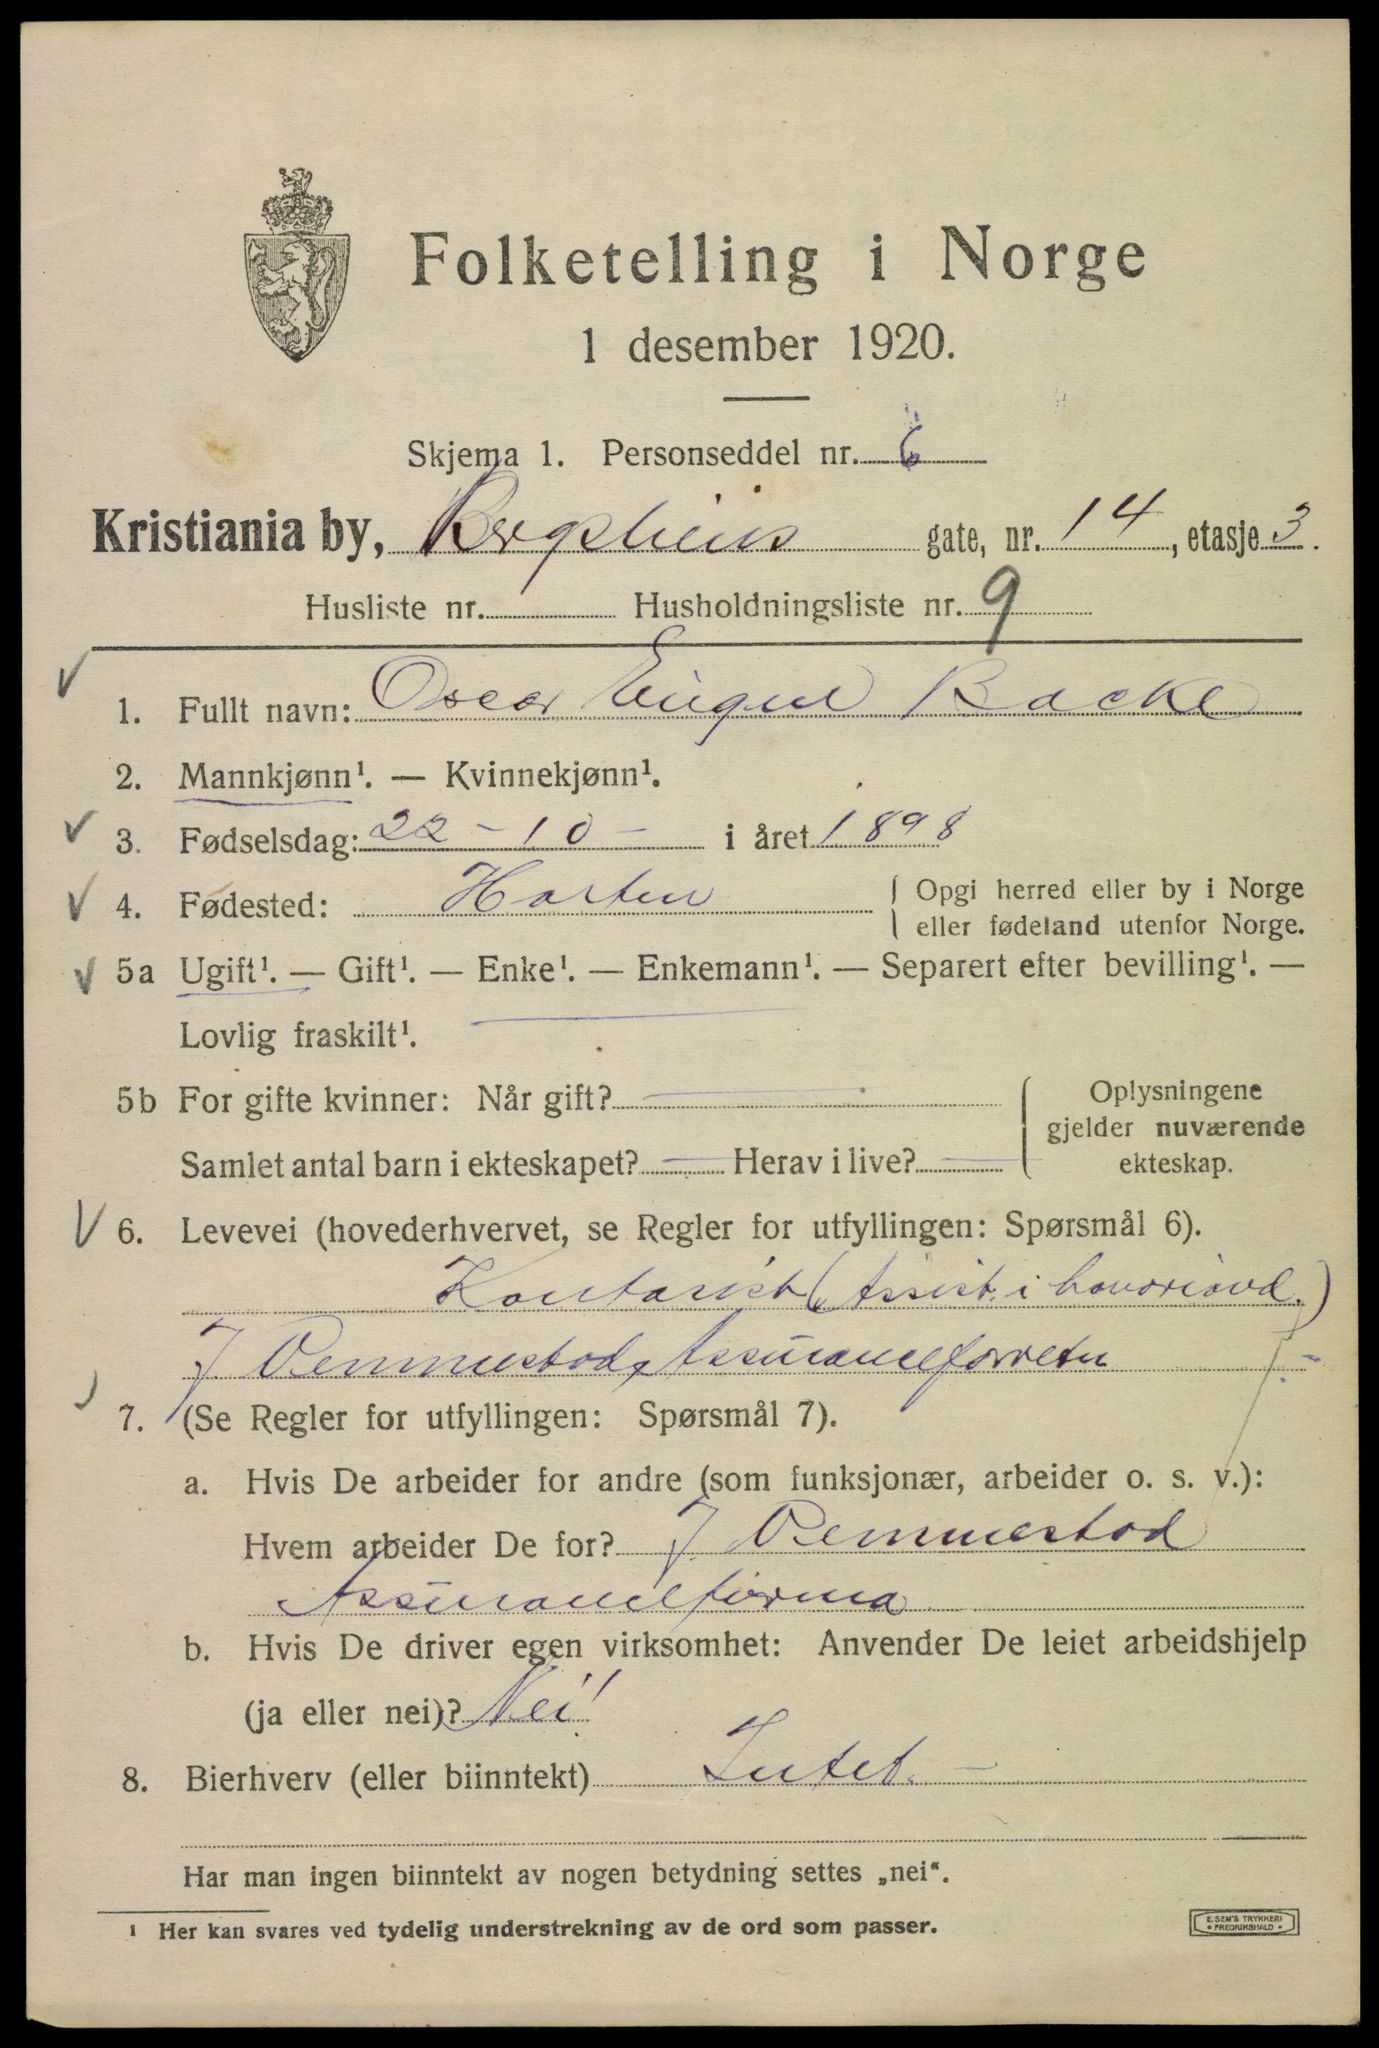 Folketelling i Norge
1 desember 1920.
Skjema 1. Personseddel nr. 6
Kristiania by, Bergsliens gate, nr. 14, etasje 3.
Husliste nr. Husholdningsliste nr. 9
1. Fullt navn: Oscar Eugen Backe
2. Mannkjønn¹. — Kvinnekjønn¹.
3. Fødselsdag: 22 - 10 - i året 1898
4. Fødested: Horten { Opgi herred eller by i Norge
eller fødeland utenfor Norge.
5a Ugift¹. — Gift¹. — Enke¹. — Enkemann¹. — Separert efter bevilling¹. —
Lovlig fraskilt¹.
5b For gifte kvinner: Når gift? — { Oplysningene
gjelder nuværende
Samlet antal barn i ekteskapet? — Herav i live? —
ekteskap.
6. Levevei (hovederhvervet, se Regler for utfyllingen: Spørsmål 6).
Kontorist (Assist. i havariavd.)
J Assuranceforretn
7. (Se Regler for utfyllingen: Spørsmål 7).
a. Hvis De arbeider for andre (som funksjonær, arbeider o. s. v.):
Hvem arbeider De for? J.
Assurancefirma
b. Hvis De driver egen virksomhet: Anvender De leiet arbeidshjelp
(ja eller nei)? Nei!
8. Bierhverv (eller biinntekt) Intet. —
Har man ingen biinntekt av nogen betydning settes „nei“.
¹ Her kan svares ved tydelig understrekning av de ord som passer.
E. SEM'S TRYKKERI
• FREDRIKSHALD •